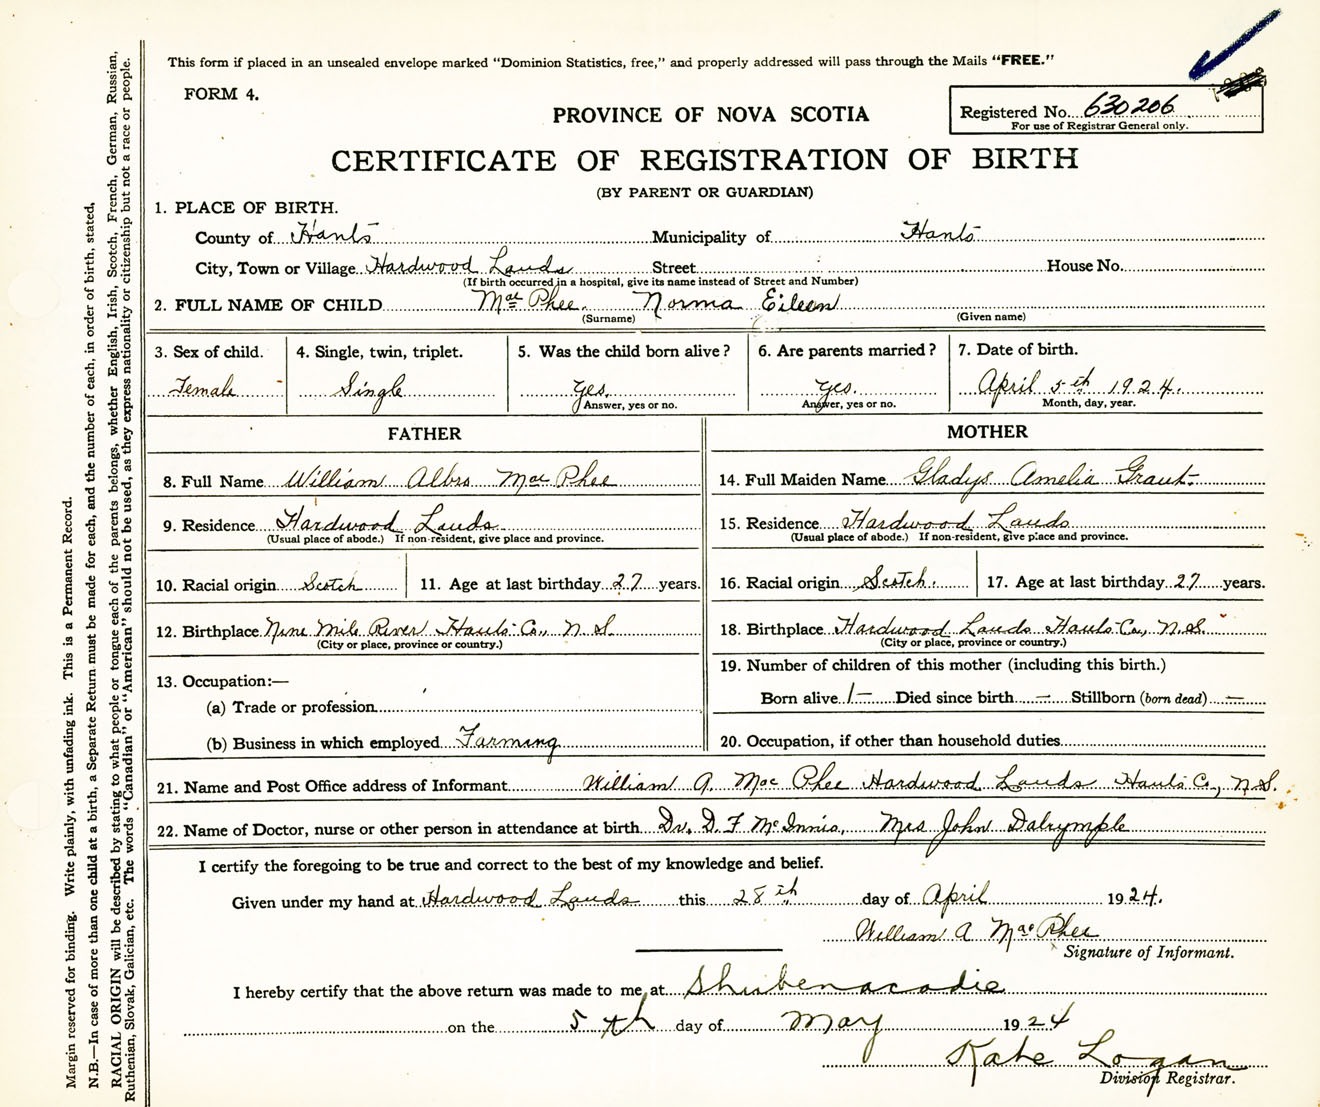 This form if placed in an unsealed envelope marked "Dominion Statistics, free," and properly addressed will pass through the Mails "FREE."
FORM 4.
PROVINCE OF NOVA SCOTIA
Registered No. 630206
For use of Registrar General only.
CERTIFICATE OF REGISTRATION OF BIRTH
(BY PARENT OR GUARDIAN)
1. PLACE OF BIRTH.
County of Hants Municipality of Hants
City, Town or Village Hardwood Lands Street House No.
(If birth occurred in a hospital, give its name instead of Street and Number)
2. FULL NAME OF CHILD MacPhee. Norma Eileen
(Surname) (Given name)
3. Sex of child. 4. Single, twin, triplet. 5. Was the child born alive? 6. Are parents married? 7. Date of birth.
Female Single yes. yes. April 5th 1924.
Answer, yes or no. Answer, yes or no. Month, day, year.
FATHER MOTHER
8. Full Name William Albro MacPhee 14. Full Maiden Name Gladys Amelia Grant.
9. Residence Hardwood Lands 15. Residence Hardwood Lands
(Usual place of abode.) If non-resident, give place and province. (Usual place of abode.) If non-resident, give place and province.
10. Racial origin Scotch 11. Age at last birthday 27 years. 16. Racial origin Scotch. 17. Age at last birthday 27 years.
12. Birthplace Nine Mile River Hants Co., N.S. 18. Birthplace Hardwood Lands Hants Co., N.S.
(City or place, province or country.) (City or place, province or country.)
19. Number of children of this mother (including this birth.)
13. Occupation:—
Born alive 1— Died since birth — Stillborn (born dead) —
(a) Trade or profession
(b) Business in which employed Farming 20. Occupation, if other than household duties
21. Name and Post Office address of Informant William A. MacPhee Hardwood Lands Hants Co., N.S.
22. Name of Doctor, nurse or other person in attendance at birth Dr. D. F McInnis, Mrs John Dalrymple
I certify the foregoing to be true and correct to the best of my knowledge and belief.
Given under my hand at Hardwood Lands this 28th day of April 1924.
William A MacPhee
Signature of Informant.
I hereby certify that the above return was made to me at Shubenacadie
on the 5th day of May 1924
Kate Logan
Division Registrar.
Margin reserved for binding. Write plainly, with unfading ink. This is a Permanent Record.
N.B.—In case of more than one child at a birth, a Separate Return must be made for each, and the number of each, in order of birth, stated,
RACIAL ORIGIN will be described by stating to what people or tongue each of the parents belongs, whether English, Irish, Scotch, French, German, Russian,
Ruthenian, Slovak, Galician, etc. The words "Canadian" or "American" should not be used, as they express nationality or citizenship but not a race or people.